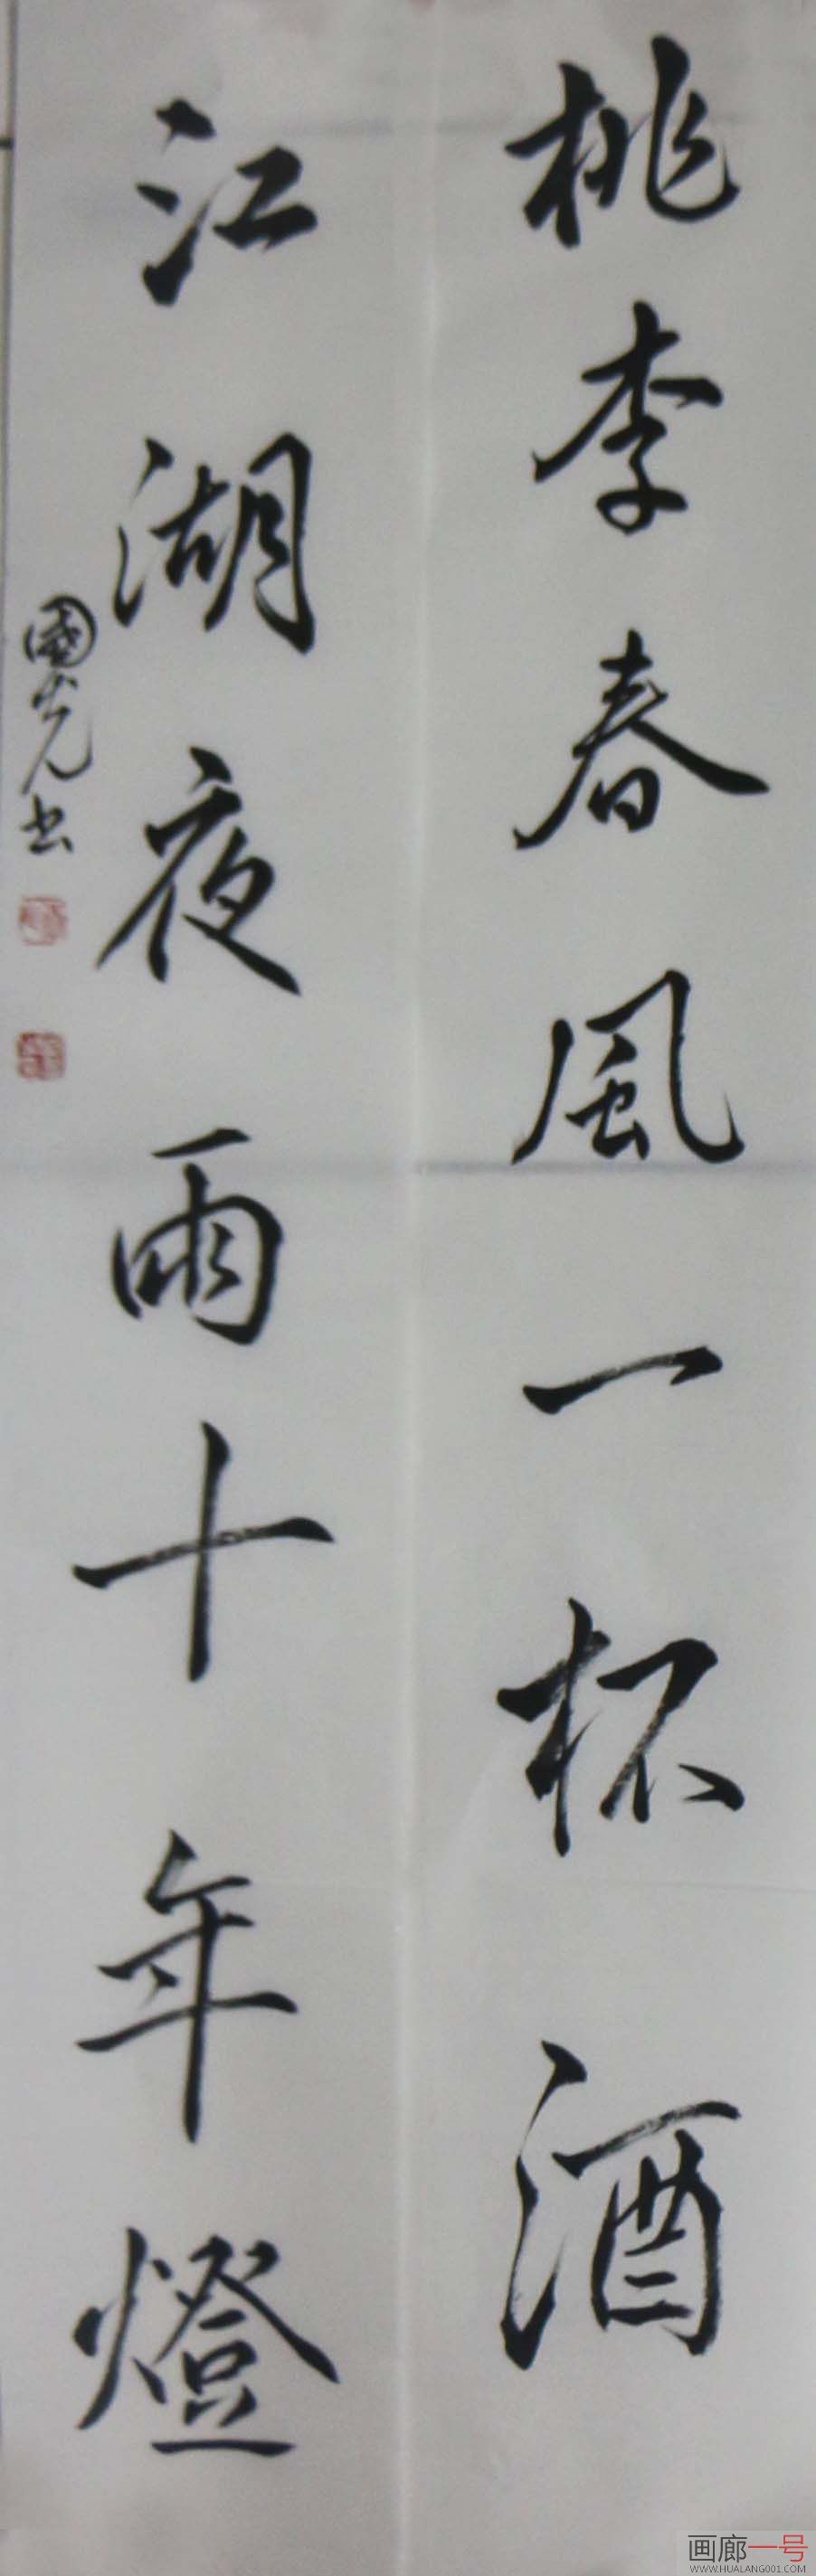 桃李春風一杯酒
江湖夜雨十年燈
國光书
画廊一号
WWW.HUALANG001.COM